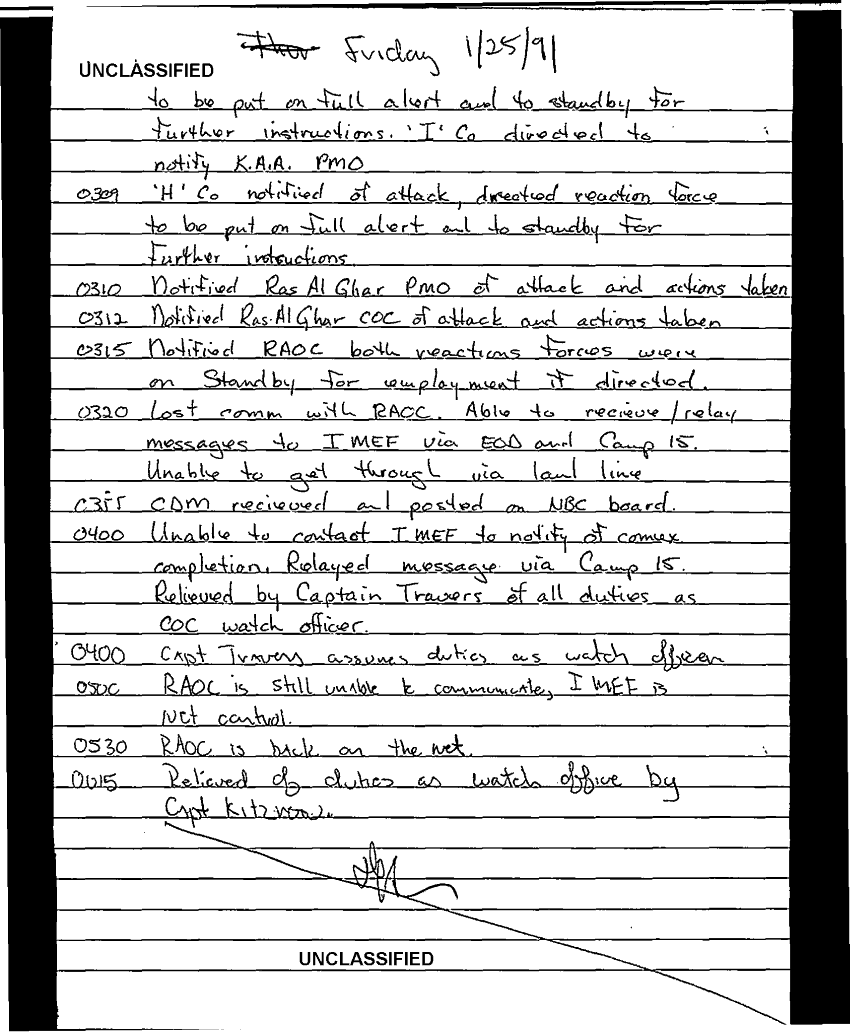 Thur Friday 1/25/91
UNCLASSIFIED
to be put on full alert and to standby for
further instructions. 'I' Co directed to
notify K.A.A. PMO
0309 'H' Co notified of attack, directed reaction force
to be put on full alert and to standby for
further instructions
0310 Notified Ras Al Ghar PMO of attack and actions taken
0312 Notified Ras Al Ghar COC of attack and actions taken
0315 Notified RAOC both reactions forces were
on Standby for employment if directed.
0320 Lost comm with RAOC. Able to recieve/relay
messages to I MEF via EOD and Camp 15.
Unable to get through via land line
0355 CDM recieved and posted on NBC board.
0400 Unable to contact I MEF to notify of comex
completion. Relayed message via Camp 15.
Relieved by Captain Travers of all duties as
COC watch officer.
0400 Capt Travers assumes duties as watch officer
0500 RAOC is still unable to communicate, I MEF is
Net control.
0530 RAOC is back on the net.
0615 Relieved of duties as watch office by
Capt
UNCLASSIFIED